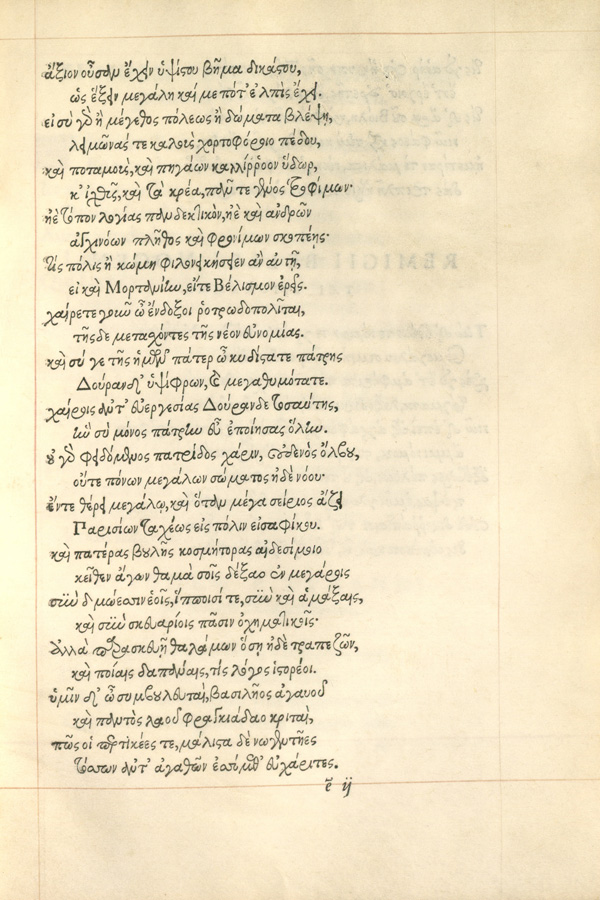 ἄξιον οὖσαν ἔχειν ὑψίστου βῆμα δικάστου,
ὡς ἕξειν μεγάλη καὶ μεποτ' ἐλπὶς ἔχει.
εἰ σὺ γὰρ ἢ μέγεθος πόλεως ἢ δώματα βλέψῃ,
λειμῶνάς τε καλοὺς χορτοφόροιο πέδου,
καὶ ποταμοὺς, καὶ πηγάων καλλίρροον ὕδωρ,
κ' ἰχθῦς, καὶ τὰ κρέα, πᾶν τε γένος τροφίμων·
ἠὲ τόπον λογίας πάνυ δεκτικὸν, ἠὲ καὶ ἀνδρῶν
ἀγχινόων πλῆθος καὶ φρονίμων σκοπέῃς·
τίς πόλις ἢ κώμη φιλονεικήσειεν ἂν αὐτῇ,
εἰ καὶ Μορτομίαν, εἴτε Βέλισμον ἐρεῖς.
χαίρετε γοιῶ ὦ ἔνδοξοι ῥοτρωδοπολῖται,
τῆς δε μετασχόντες τῆς νέον εὐνομίας.
καὶ σύ γε τῆς ἡμῶν πάτερ ὦ κυδίστατε πάτρης
Δούρανδ' ὑψίφρων, καὶ μεγαθυμότατε.
χαίροις αὖτ' εὐεργεσίας Δούρανδε τοσαύτης,
ἣν σὺ μόνος πάτραν εὖ ἐποίησας ὅλην.
οὐ γὰρ φειδόμενος πατρίδος χάριν, οὐδενὸς ὄλβου,
οὔτε πόνων μεγάλων σώματος ἠδὲ νόου·
ἔντε θέρει μεγάλῳ, καὶ ὅταν μέγα σείριος ἄζει
Παρισίων ταχέως εἰς πόλιν εἰσαφίκου.
καὶ πατέρας βουλῆς κοσμήτορας αἰδεσίμοιο
κεῖθεν ἄγων θαμὰ σοῖς δέξαο ἐν μεγάροις
σὺν δμώεσσιν ἑοῖς, ἵπποισί τε, σὺν καὶ ἁμάξαις,
καὶ σὺν σκευαρίοις πᾶσιν ὀχηματικοῖς·
ἀλλὰ παρασκευὴ θαλάμων ὅση ἠδὲ τραπεζῶν,
καὶ ποίαις δαπάναις, τίς λόγος ἱστορέοι.
ὑμῖν δ' ὦ συμβουλευταὶ, βασιλῆος ἀγαυοῦ
καὶ παντὸς λαοῦ φραγκιάδαο κριταὶ,
πῶς οἱ προτικέες τε, μάλιστα δὲ νωγλυτῆες
τόσσων αὖτ' ἀγαθῶν ἐσσόμεθ' εὐχάριτες.
ē ij